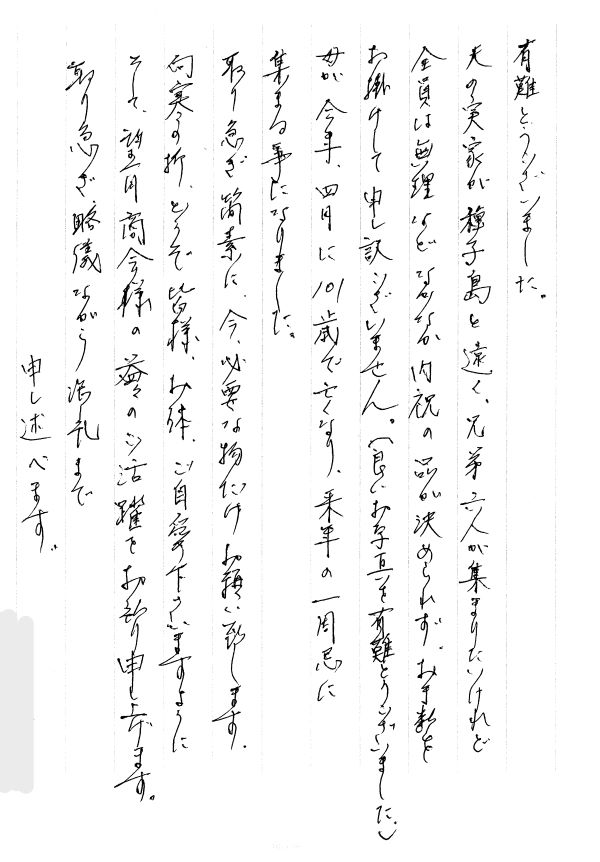 有難とうございました。
夫の実家が種子島と遠く、兄弟六人が集まりたいけれど
全員は無理などなかなか内祝の品が決められず。お手数を
お掛けして申し訳ございません。(良いお写真を有難とうございました。)
母が今年、四月に101歳で亡くなり、来年の一周忌に
集まる事になりました。
取り急ぎ簡素に、今、必要な物だけお願い致します。
向寒の折、どうぞ皆様、お体、ご自愛下さいますように
そして、望月商会様の益々のご活躍をお祈り申し上げます。
取り急ぎ略儀ながら御礼まで
申し述べます。